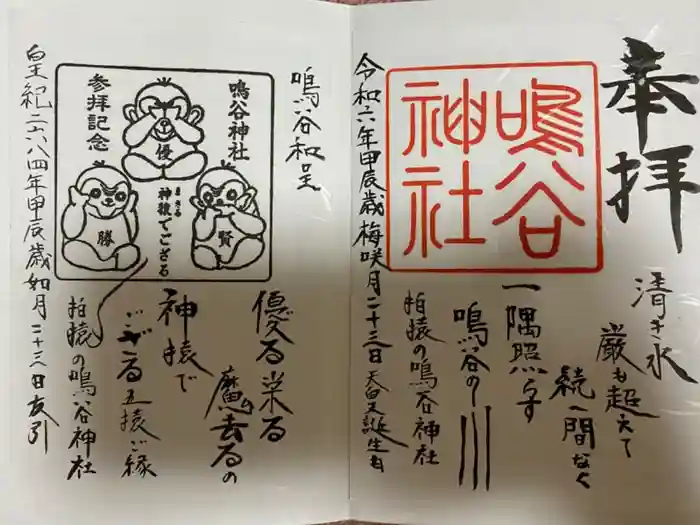 奉拝
鳴谷
神社
清き水
巌も超えて
続く間なく
一隅照らす
鳴谷の川
拍猿の鳴谷神社
令和六年甲辰歳梅咲月二十三日天皇誕生日
鳴谷和呈
鳴谷神社
参拝記念
優
勝
賢
まさる
神猿でござる
優る栄る
魔去るの
神猿で
ござる五猿ご縁
拍猿の鳴谷神社
皇紀二六八四年甲辰歳如月二十三日友引